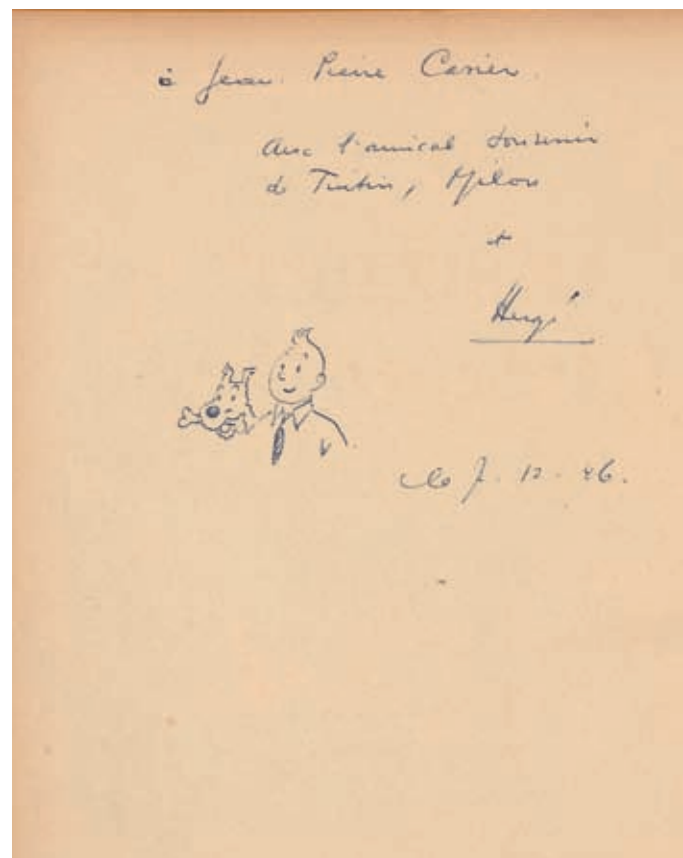 à Jean-Pierre Carier.
Avec l'amical souvenir
de Tintin, Milou
et
Hergé
le 7.12.46.